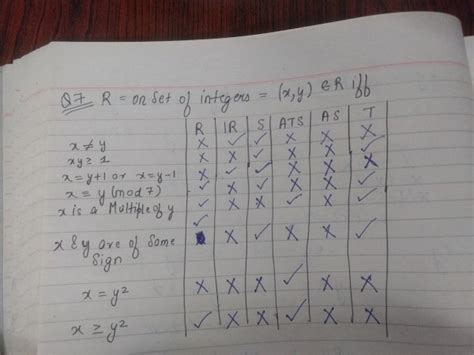 Q7 R = on Set of integers = (x,y) ∈ R iff
R IR S ATS AS T
x ≠ y X ✓ ✓ X X X
xy ≥ 1 X X ✓ X X ✓
x = y+1 or x = y-1 X ✓ ✓ X X X
x ≡ y (mod 7) ✓ X ✓ X X ✓
x is a Multiple of y ✓ X X X X ✓
✓
x & y are of Same X ✓ X X ✓
Sign
x = y² X X X ✓ X X
x ≥ y² ✓ X X ✓ X ✓